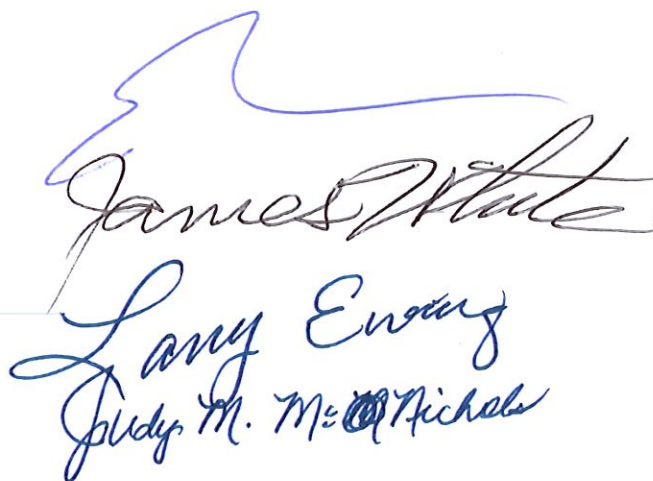 James White
Larry Ewing
Judy M. Mc Nichols